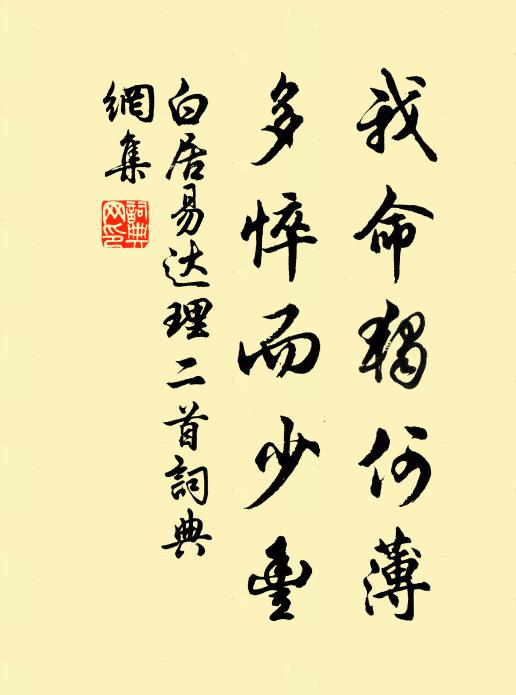 我命獨何薄
多悴而少豐
白居易达理二首詞典
網集
詞典
网印